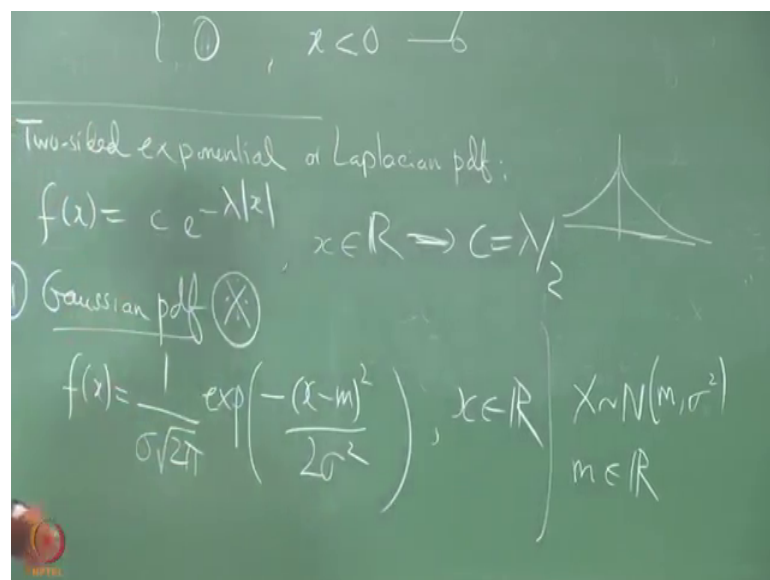 0 , x < 0
Two-sided exponential or Laplacian pdf:
f(x) = c e^{-λ|x|} , x ∈ ℝ ⟹ C = λ/2
Gaussian pdf
f(x) = 1/(σ√2π) exp( -(x-m)^2 / 2σ^2 ) , x ∈ ℝ
X ~ N(m, σ^2)
m ∈ ℝ
NPTEL